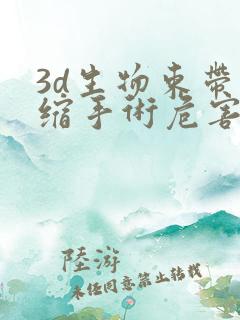 3d生物束带
缩手術危害
陸游
未经同意禁止转载